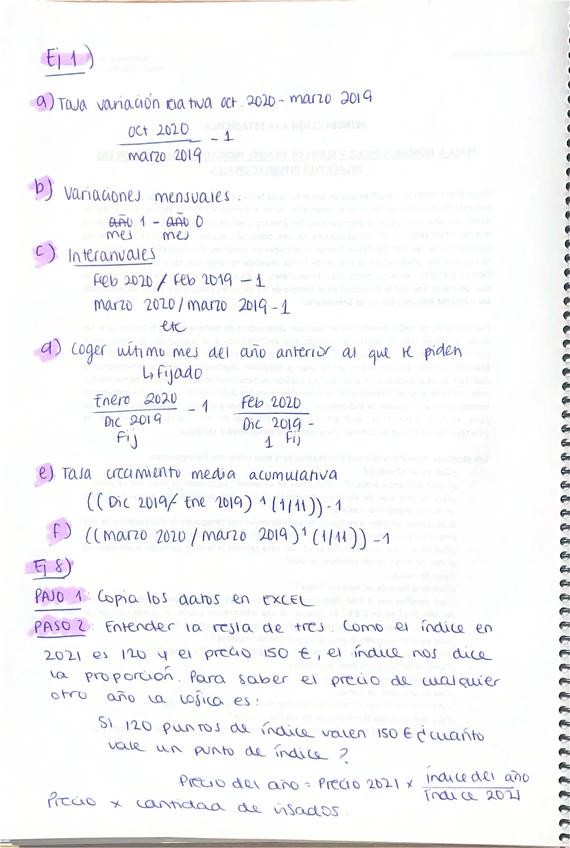 Ej 1)
a) Tasa variación relativa oct. 2020 - marzo 2019
oct 2020 / marzo 2019 - 1
b) Variaciones mensuales:
año 1 - año 0
mes mes
c) Interanuales
Feb 2020 / Feb 2019 - 1
marzo 2020/marzo 2019 - 1
etc
d) Coger último mes del año anterior al que te piden
↳ Fijado
Enero 2020 / Dic 2019 - 1 Feb 2020 / Dic 2019 - 1
Fij Fij
e) Tasa crecimiento media acumulativa
((Dic 2019/ Ene 2019) ^ (1/11)) - 1
f) ((marzo 2020 / marzo 2019) ^ (1/11)) - 1
Ej 8)
PASO 1: Copia los datos en EXCEL
PASO 2: Entender la regla de tres. Como el índice en
2021 es 120 y el precio 150 €, el índice nos dice
la proporción. Para saber el precio de cualquier
otro año la logica es:
Si 120 puntos de índice valen 150 € ¿cuanto
vale un punto de índice?
Precio del año = Precio 2021 × índice del año / índice 2021
Precio × cantidad de visados.